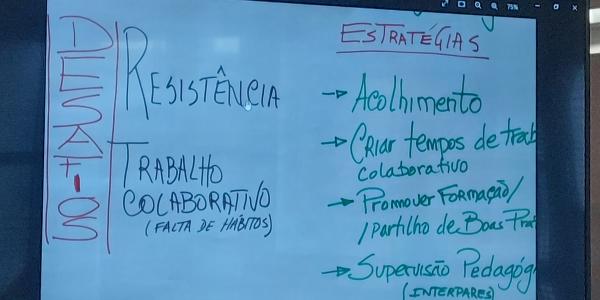 75%
DESAFIOS
RESISTÊNCIA
TRABALHO
COLABORATIVO
(FALTA DE HÁBITOS)
ESTRATÉGIAS
→ Acolhimento
→ Criar tempos de trab
colaborativo
→ Promover Formação/
/partilho de Boas Prá
→ Supervisão Pedagóg
(INTERPARES)